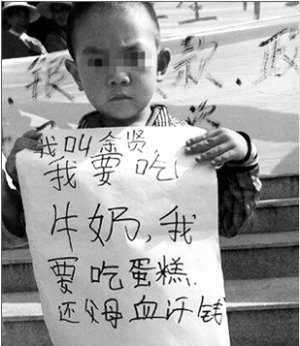 我叫余贤,
我要吃
牛奶,我
要吃蛋糕.
还父母血汗钱